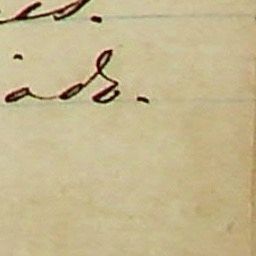 es.
iado.